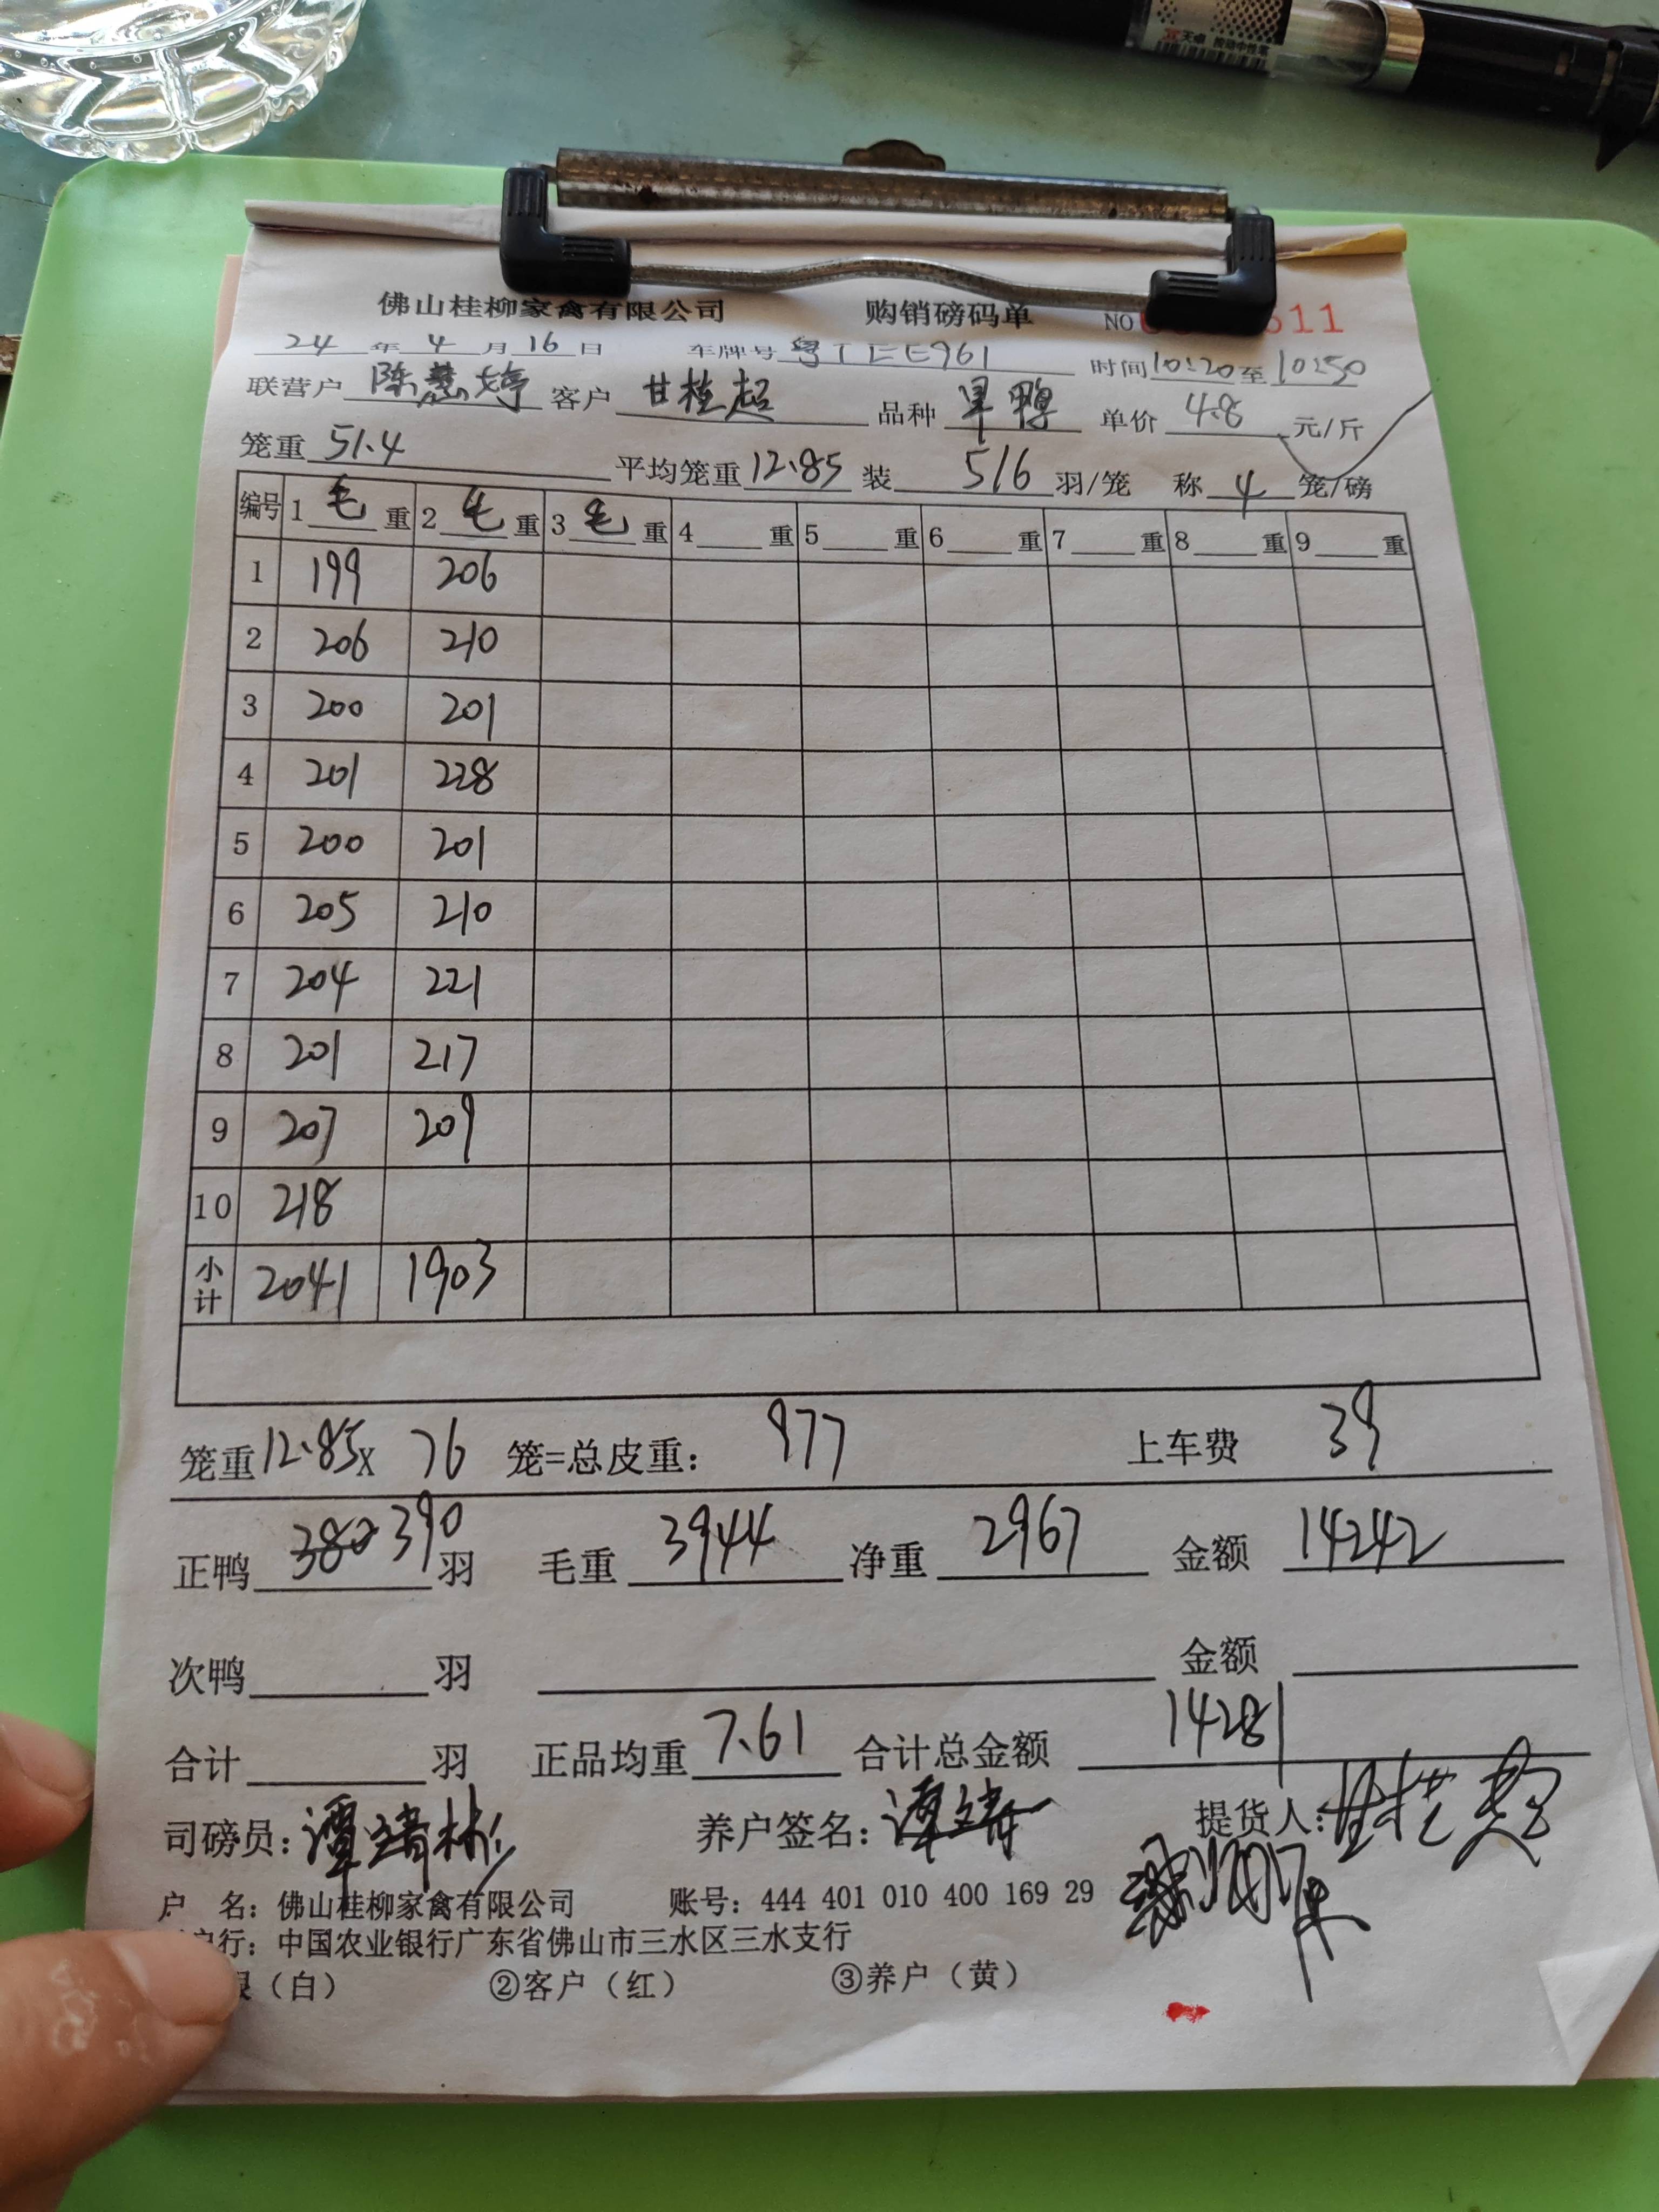 天卓 按动中性笔
佛山桂柳家禽有限公司 购销磅码单 NO 611
24 年 4 月 16 日 车牌号 粤TEE961 时间 10:20 至 10:50
联营户 陈慧婷 客户 甘桂超 品种 旱鸭 单价 4.8 元/斤
笼重 51.4 平均笼重 12.85 装 5/6 羽/笼 称 4 笼/磅
编号 1 毛 重 2 毛 重 3 毛 重 4 重 5 重 6 重 7 重 8 重 9 重
1 199 206
2 206 210
3 200 201
4 201 228
5 200 201
6 205 210
7 204 221
8 201 217
9 207 209
10 218
小计 2041 1903
笼重 12.85 X 76 笼=总皮重: 977 上车费 39
正鸭 380 390 羽 毛重 3944 净重 2967 金额 14242
次鸭 羽 金额
合计 羽 正品均重 7.61 合计总金额 14281
司磅员: 谭靖彬 养户签名: 谭靖 提货人: 甘桂超
户 名: 佛山桂柳家禽有限公司 账号: 444 401 010 400 169 29
户行: 中国农业银行广东省佛山市三水区三水支行
(白) ②客户(红) ③养户(黄)